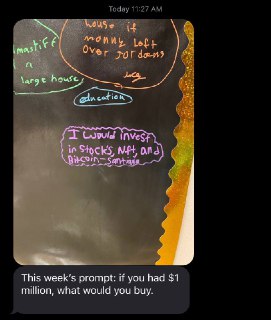 Today 11:27 AM
mastiff
n
large house
house if
money left
over for dogs
education
I would invest
in stocks, Nft, and
Bitcoin - Santiago
This week's prompt: if you had $1
million, what would you buy.